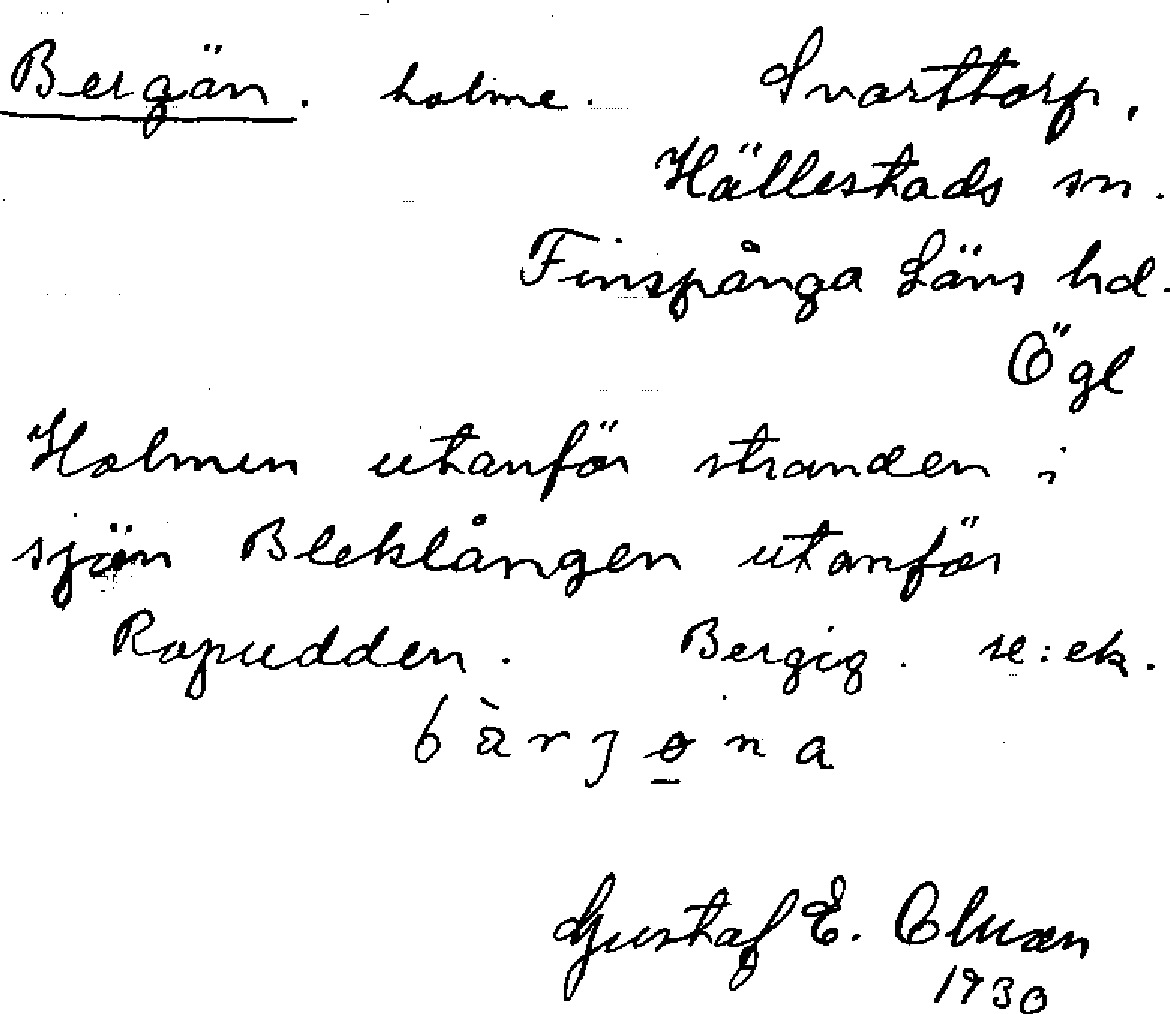 Bergön. holme. Svarttorp.
Hällestads sn.
Finspånga Läns hd.
Ögl
Holmen utanför stranden i
sjön Bleklången utanför
Rapudden. Bergig. se: ek.
bàrjo̲na
Gustaf E.
1930